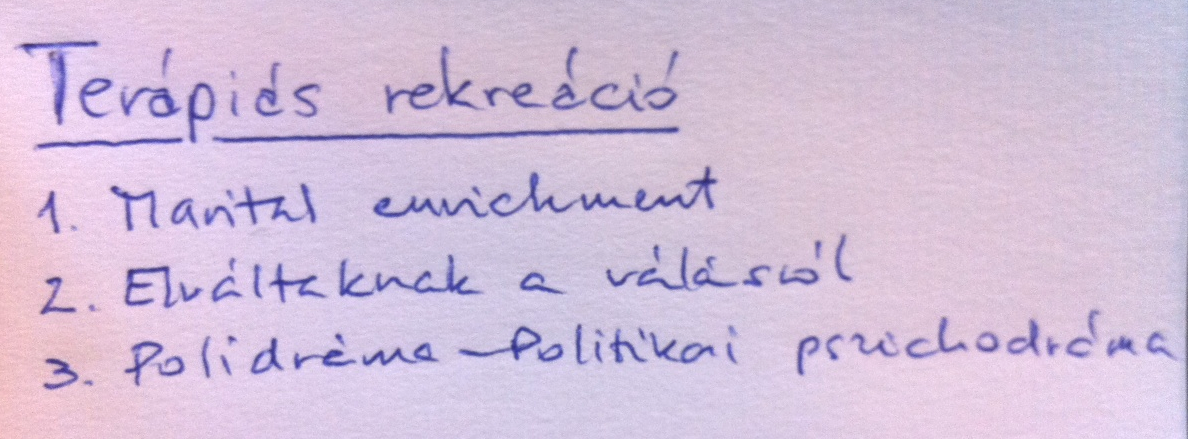 Terápiás rekreáció
1. Marital enrichment
2. Elváltaknak a válásról
3. Polidráma - Politikai pszichodráma